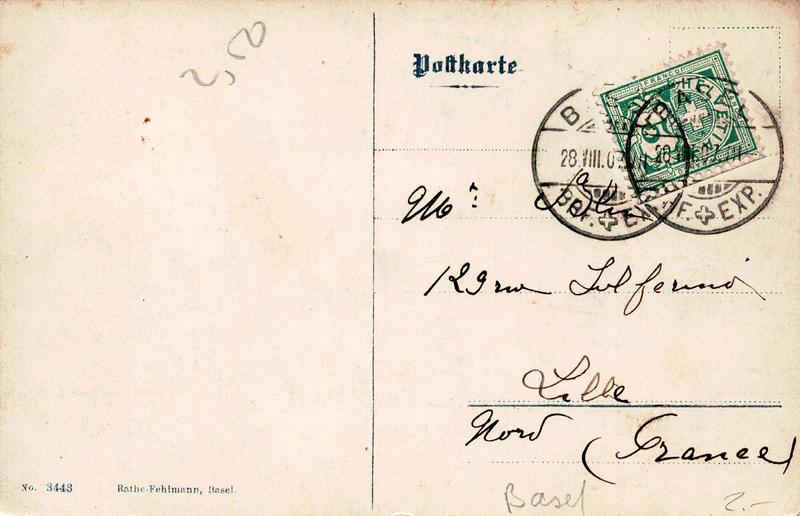 2,50
Postkarte
FRANCO
HELVETIA
BA
28.VIII.07
28.VIII.07
BRF. EXP.
RF. EXP.
Mr:
129 rue Solferino
Lille
Nord (France)
No. 3443 Rathe-Fehlmann, Basel.
Basel 2.-